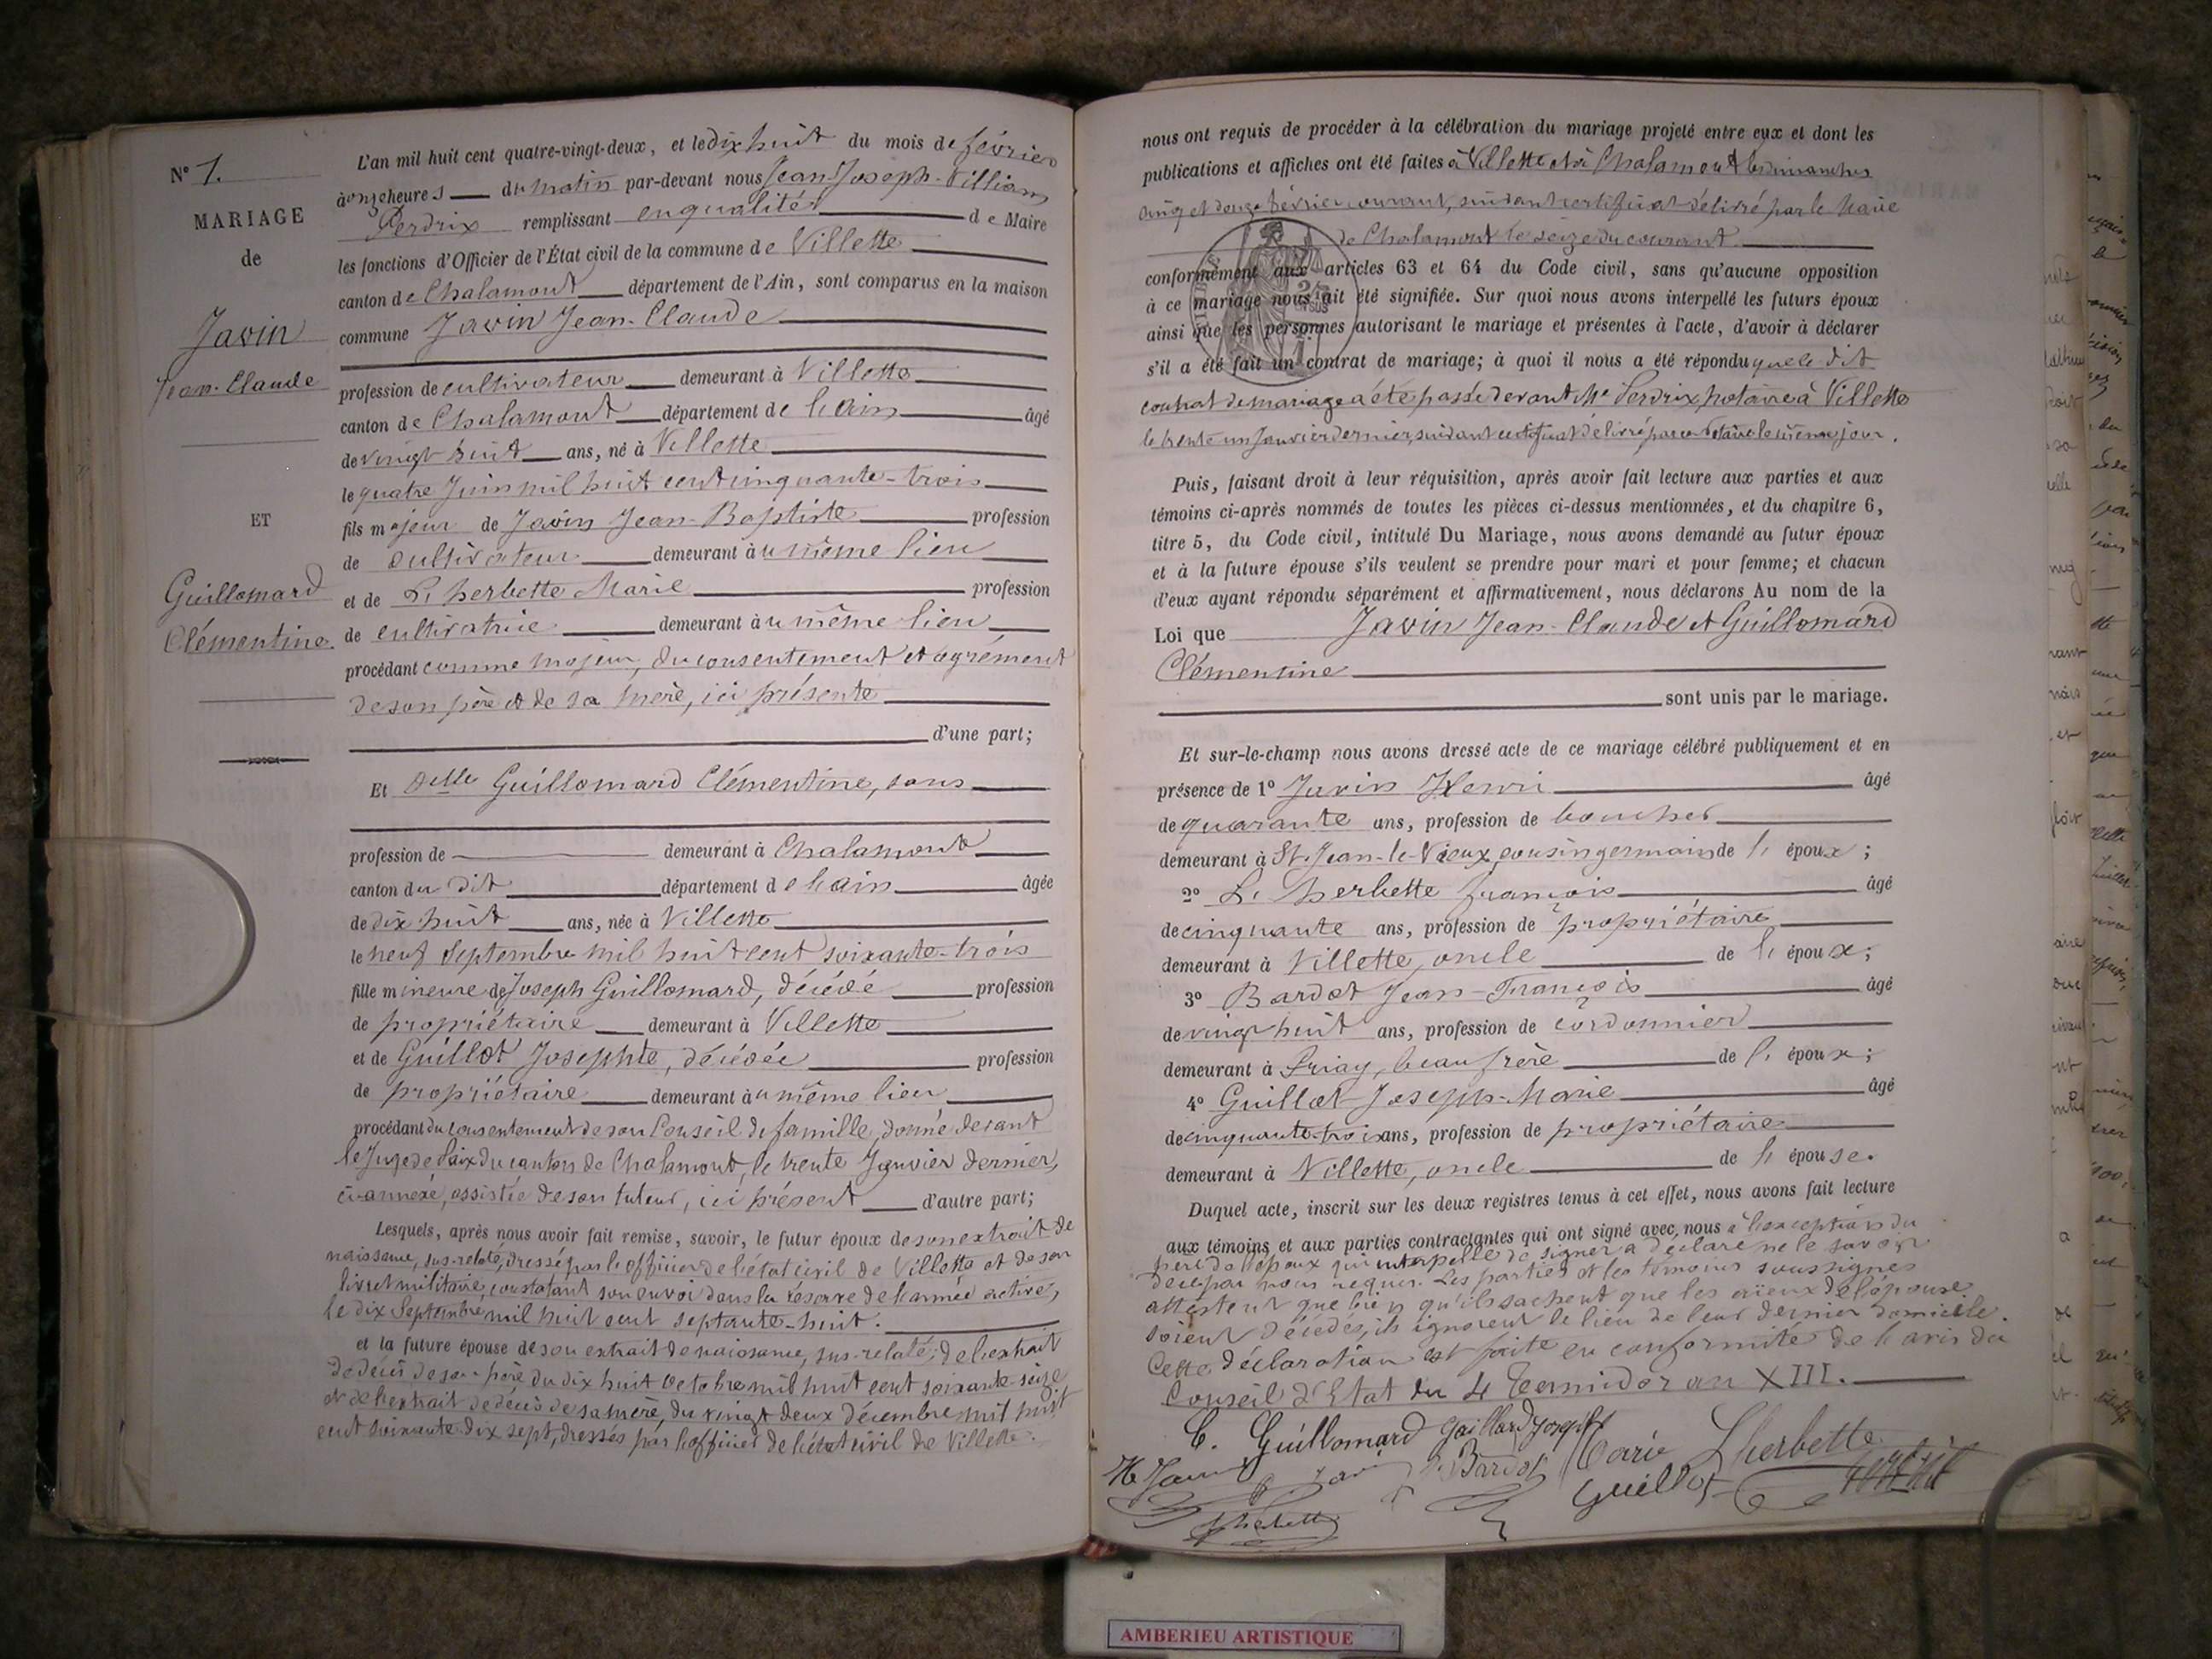 N° 1.
MARIAGE
de
Javin
Jean-Claude
ET
Guillomard
Clémentine.
L'an mil huit cent quatre-vingt-deux, et le dix huit du mois de février
à onze heures du matin par-devant nous Jean Joseph William
Perdrix remplissant en qualité de Maire
les fonctions d'Officier de l'État civil de la commune de Villette
canton de Chalamont département de l'Ain, sont comparus en la maison
commune Javin Jean-Claude
profession de cultivateur demeurant à Villette
canton de Chalamont département de l'ain âgé
de vingt huit ans, né à Villette
le quatre Juin mil huit cent cinquante-trois
fils majeur de Javin Jean-Baptiste profession
de cultivateur demeurant au même lieu
et de L'herbette Marie profession
de cultivatrice demeurant au même lieu
procédant comme majeur, du consentement et agrément
de son père et de sa mère, ici présente
d'une part;
Et delle Guillomard Clémentine, sans
profession de demeurant à Chalamont
canton du dit département de l'ain âgée
de dix huit ans, née à Villette
le neuf Septembre mil huit cent soixante-trois
fille mineure de Joseph Guillomard, décédé profession
de propriétaire demeurant à Villette
et de Guillot Josephte, décédée profession
de propriétaire demeurant au même lieu
procédant du consentement de son Conseil de famille, donné devant
le Juge de Paix du canton de Chalamont, le trente Janvier dernier,
ci-annexé, assistée de son tuteur, ici présent d'autre part;
Lesquels, après nous avoir fait remise, savoir, le futur époux de son extrait de
naissance, sus-relaté, dressé par l'officier de l'état civil de Villette et de son
livret militaire, constatant son envoi dans la réserve de l'armée active,
le dix Septembre mil huit cent septante-huit.
et la future épouse de son extrait de naissance, sus-relaté; de l'extrait
de décès de son père du dix huit Octobre mil huit cent soixante-seize
et de l'extrait de décès de sa mère, du vingt deux Décembre mil huit
cent soixante dix sept, dressés par l'officier de l'état civil de Villette.
nous ont requis de procéder à la célébration du mariage projeté entre eux et dont les
publications et affiches ont été faites à Villette et à Chalamont les dimanches
cinq et douze février courant, suivant certificat délivré par le Maire
de Chalamont le seize du courant
conformément aux articles 63 et 64 du Code civil, sans qu'aucune opposition
à ce mariage nous ait été signifiée. Sur quoi nous avons interpellé les futurs époux
ainsi que les personnes autorisant le mariage et présentes à l'acte, d'avoir à déclarer
s'il a été fait un contrat de mariage; à quoi il nous a été répondu que le dit
contrat de mariage a été passé devant Me Perdrix notaire à Villette
le trente un Janvier dernier, suivant certificat délivré par ce notaire le même jour.
Puis, faisant droit à leur réquisition, après avoir fait lecture aux parties et aux
témoins ci-après nommés de toutes les pièces ci-dessus mentionnées, et du chapitre 6,
titre 5, du Code civil, intitulé Du Mariage, nous avons demandé au futur époux
et à la future épouse s'ils veulent se prendre pour mari et pour femme; et chacun
d'eux ayant répondu séparément et affirmativement, nous déclarons Au nom de la
Loi que Javin Jean-Claude et Guillomard
Clémentine
sont unis par le mariage.
Et sur-le-champ nous avons dressé acte de ce mariage célébré publiquement et en
présence de 1° Javin Henri âgé
de quarante ans, profession de boucher
demeurant à St. Jean-le-Vieux, cousin germain de l'époux;
2° L'herbette françois âgé
de cinquante ans, profession de propriétaire
demeurant à Villette, oncle de l'époux;
3° Bardot Jean-François âgé
de vingt huit ans, profession de cordonnier
demeurant à Priay, beau frère de l'époux;
4° Guillot Joseph-Marie âgé
de cinquante-trois ans, profession de propriétaire
demeurant à Villette, oncle de l'épouse.
Duquel acte, inscrit sur les deux registres tenus à cet effet, nous avons fait lecture
aux témoins et aux parties contractantes qui ont signé avec nous à l'exception du
père de l'époux qui interpellé de signer a déclaré ne le savoir
de ce par nous requis. Les parties et les témoins soussignés
attestent que bien qu'ils sachent que les aïeux de l'épouse
soient décédés, ils ignorent le lieu de leur dernier domicile.
Cette déclaration est faite en conformité de l'avis du
Conseil d'Etat du 4 Termidor an XIII.
C. Guillomard Gaillard joseph Marie Lherbette
H Javin Bardot Guillot
Lherbette
AMBERIEU ARTISTIQUE